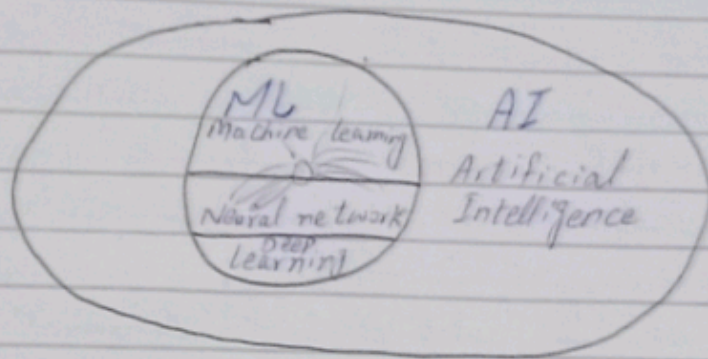 ML
Machine Learning
Neural network
Deep
Learning
AI
Artificial
Intelligence